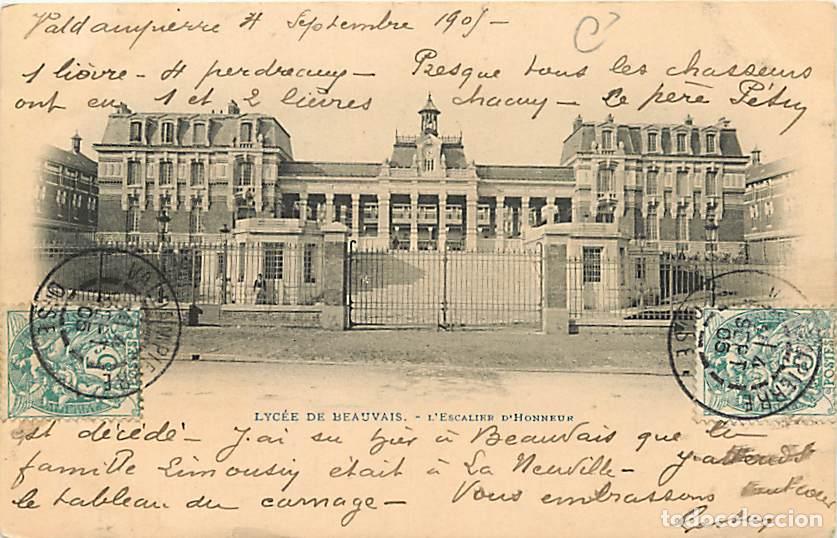 Valdampierre 4 Septembre 1905
1 lièvre - 4 perdreaux - Presque tous les chasseurs
ont eu 1 et 2 lièvres chacun - Le père Pétry
VALDAMPIERRE
OISE
4
SEPT
05
5
VALDAMPIERRE
OISE
4
SEPT
05
LYCÉE DE BEAUVAIS. - L'ESCALIER D'HONNEUR
est décédé - J'ai su hier à Beauvais que la
famille Limousin était à La Neuville - J'attends
le tableau du carnage - Vous embrassons
todocoleccion.net